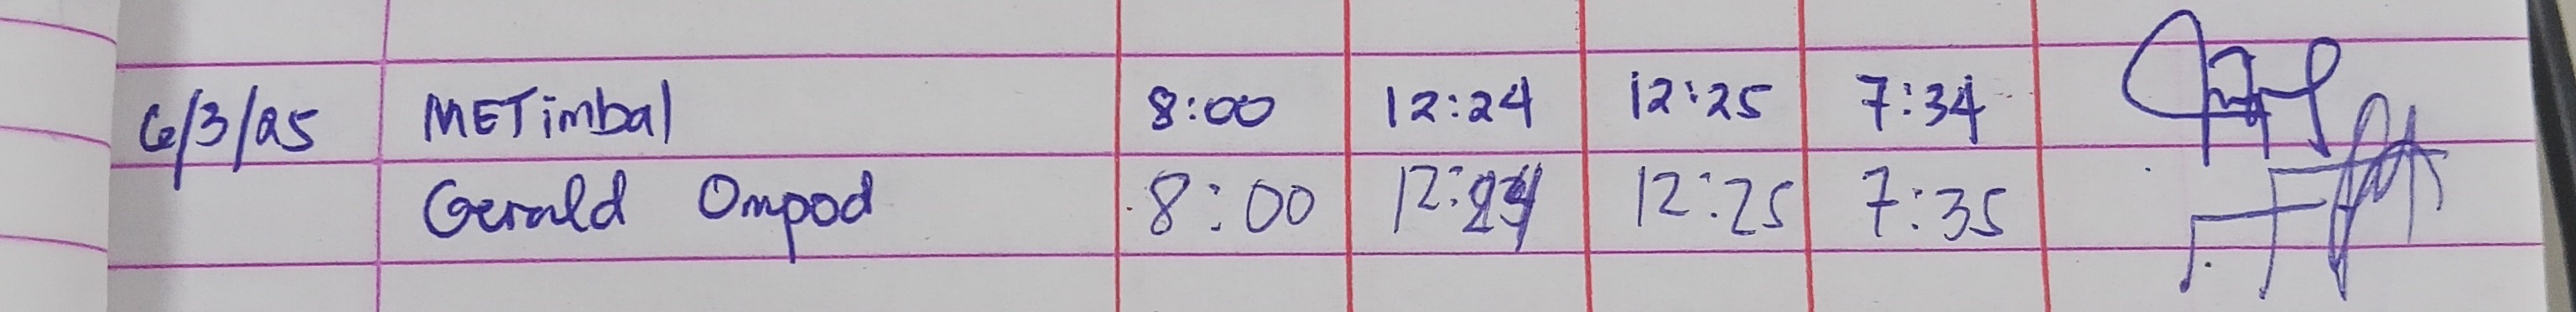 6/3/25 METimbal 8:00 12:24 12:25 7:34
Gerald Ompod 8:00 12:24 12:25 7:35